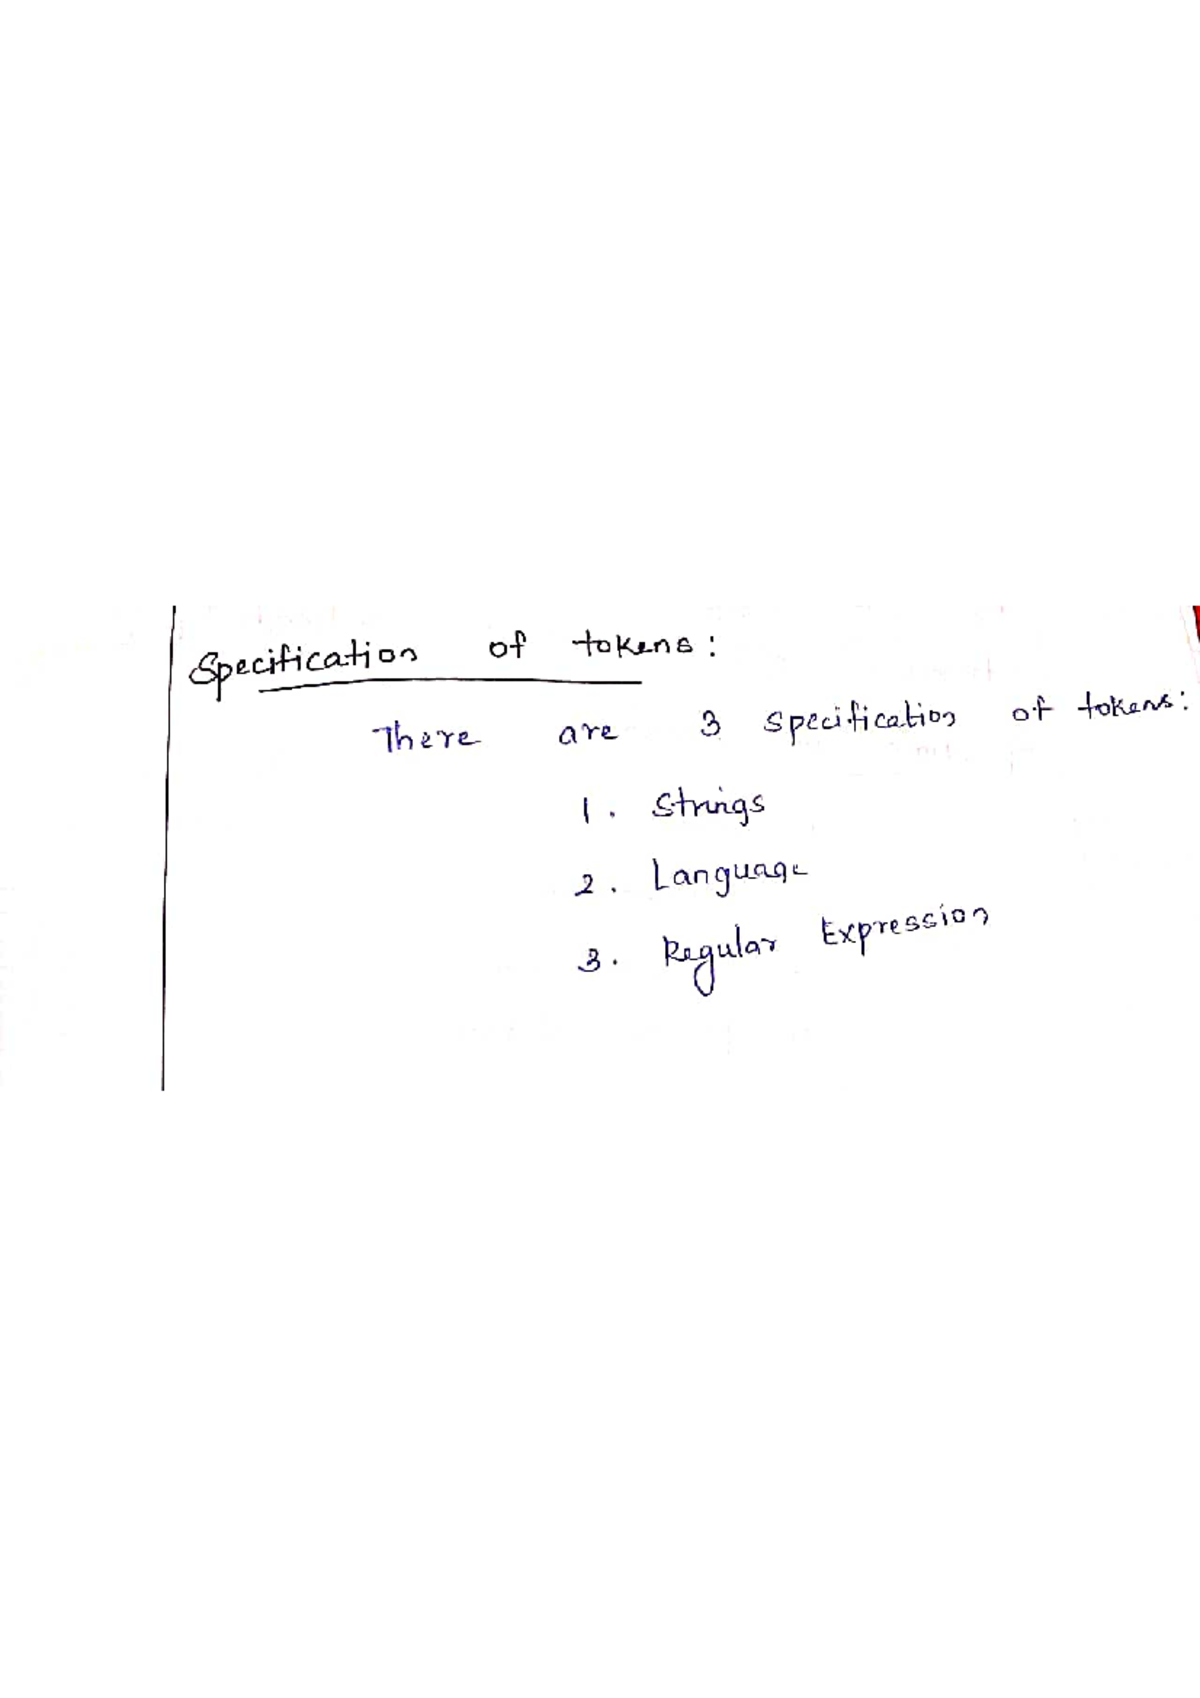 Specification of tokens:
There are 3 specification of tokens:
1. Strings
2. Language
3. Regular Expression